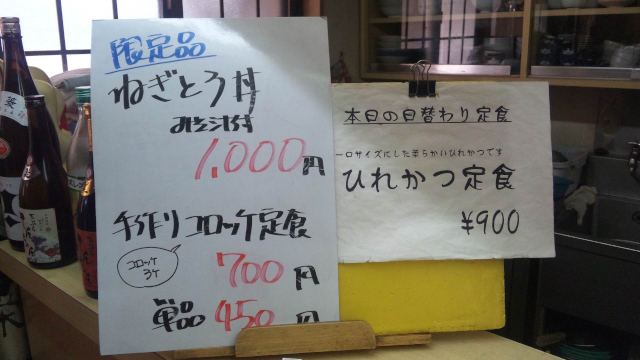 限定品
ねぎとろ丼
みそ汁付
1,000円
手作りコロッケ定食
コロッケ
3ケ
700円
単品 450円
本日の日替わり定食
一口サイズにした柔らかいひれかつです
ひれかつ定食
¥900